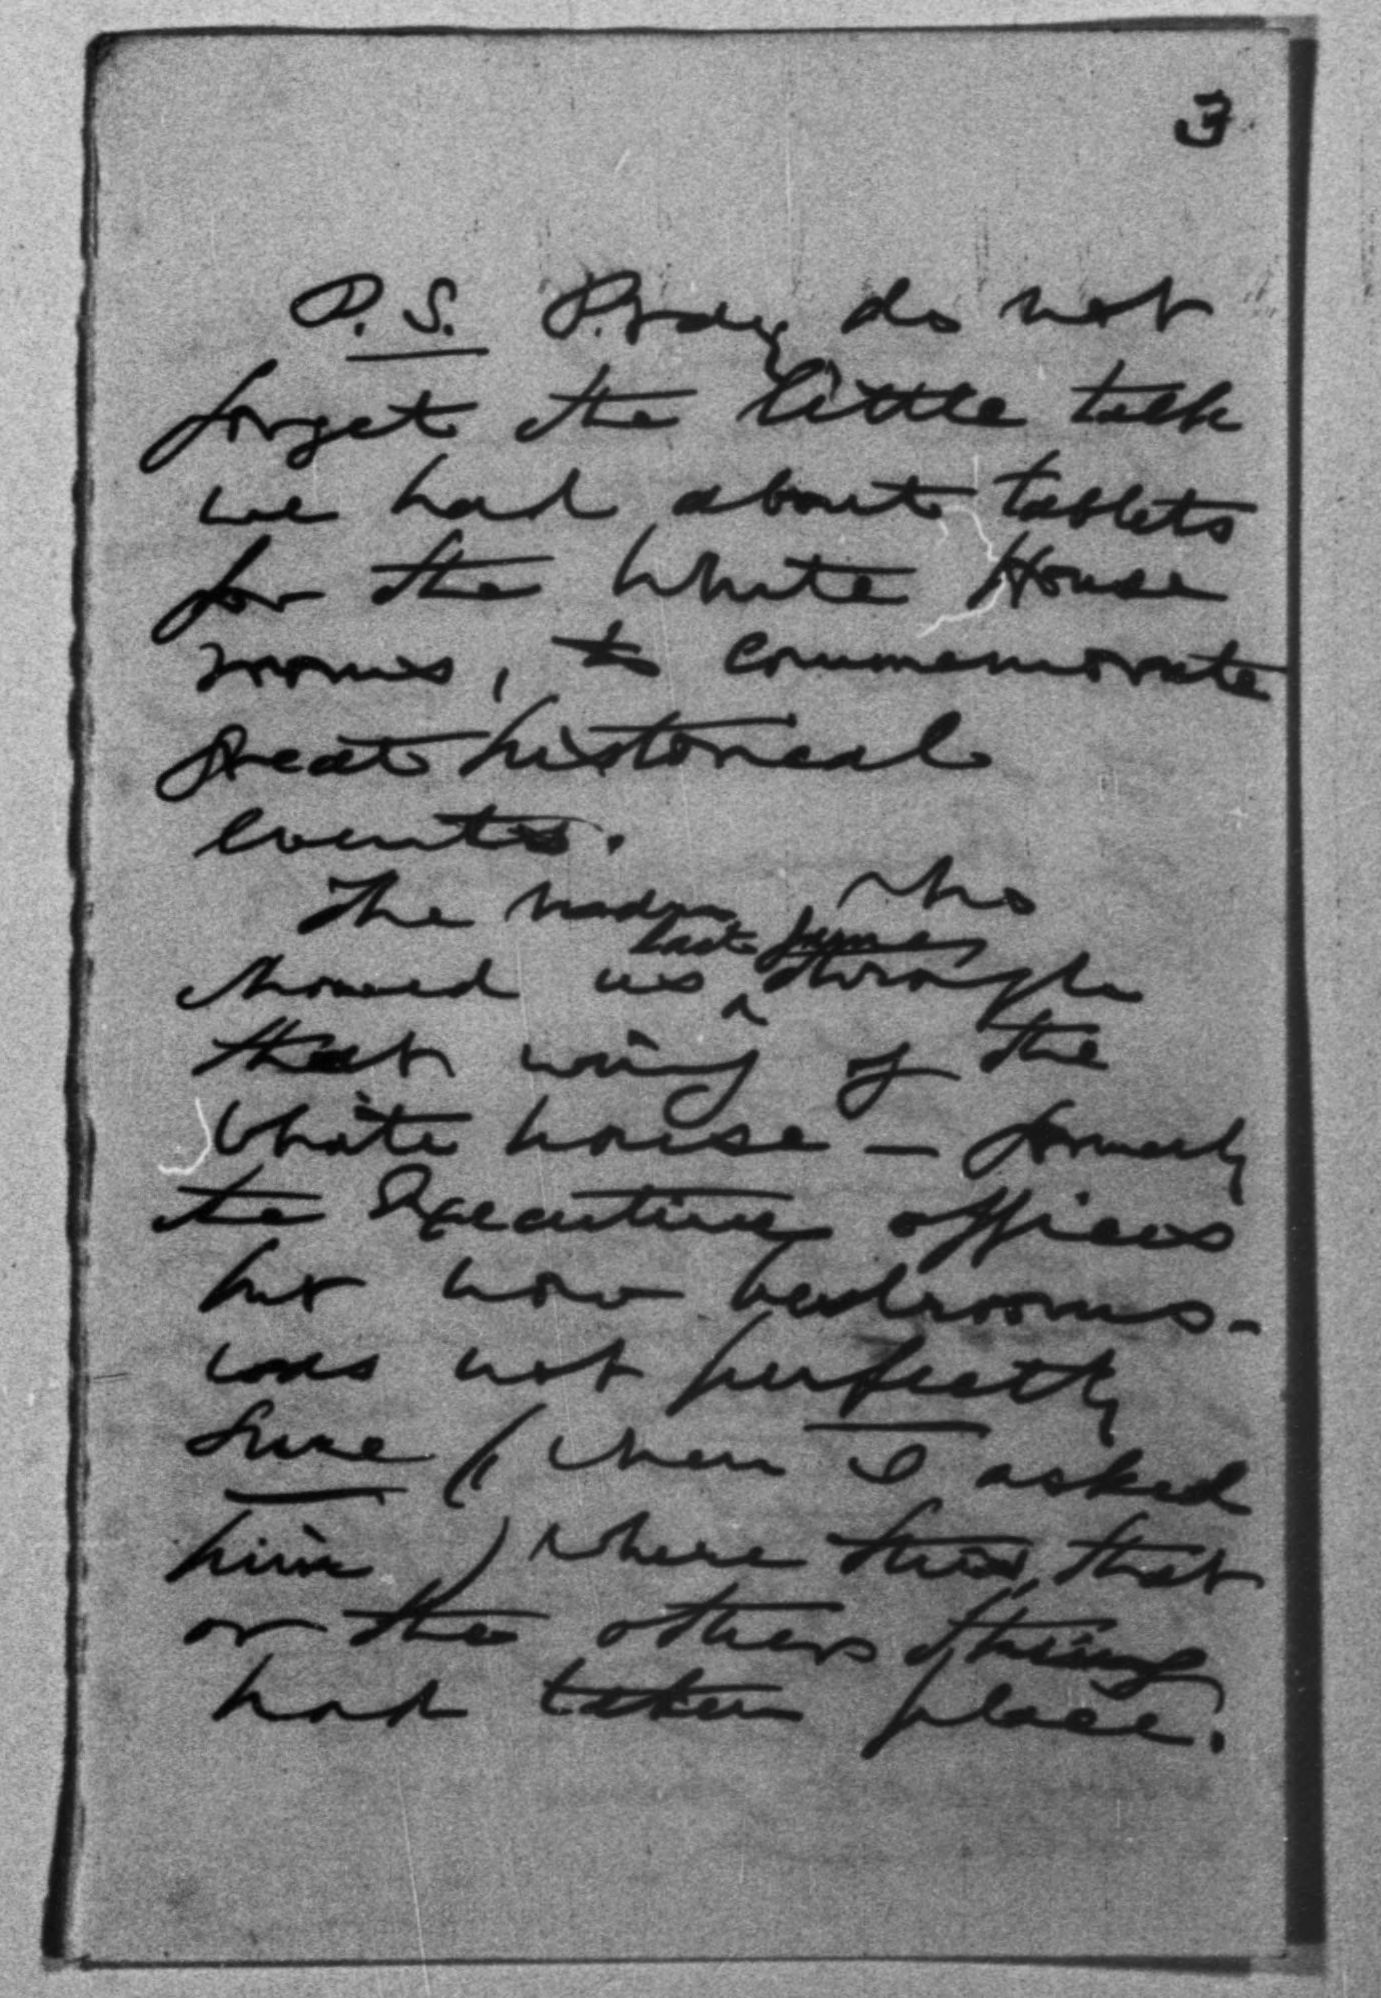 3
P.S. Pray do not
forget the little talk
we had about tablets
for the White House
rooms, to commemorate
great historical
events.
The who
last James
showed us ^ through
that wing of the
White house — formerly
the Executive offices
but now bedrooms -
was not perfectly
sure (when I asked
him) where this, that
or the other thing
had taken place.